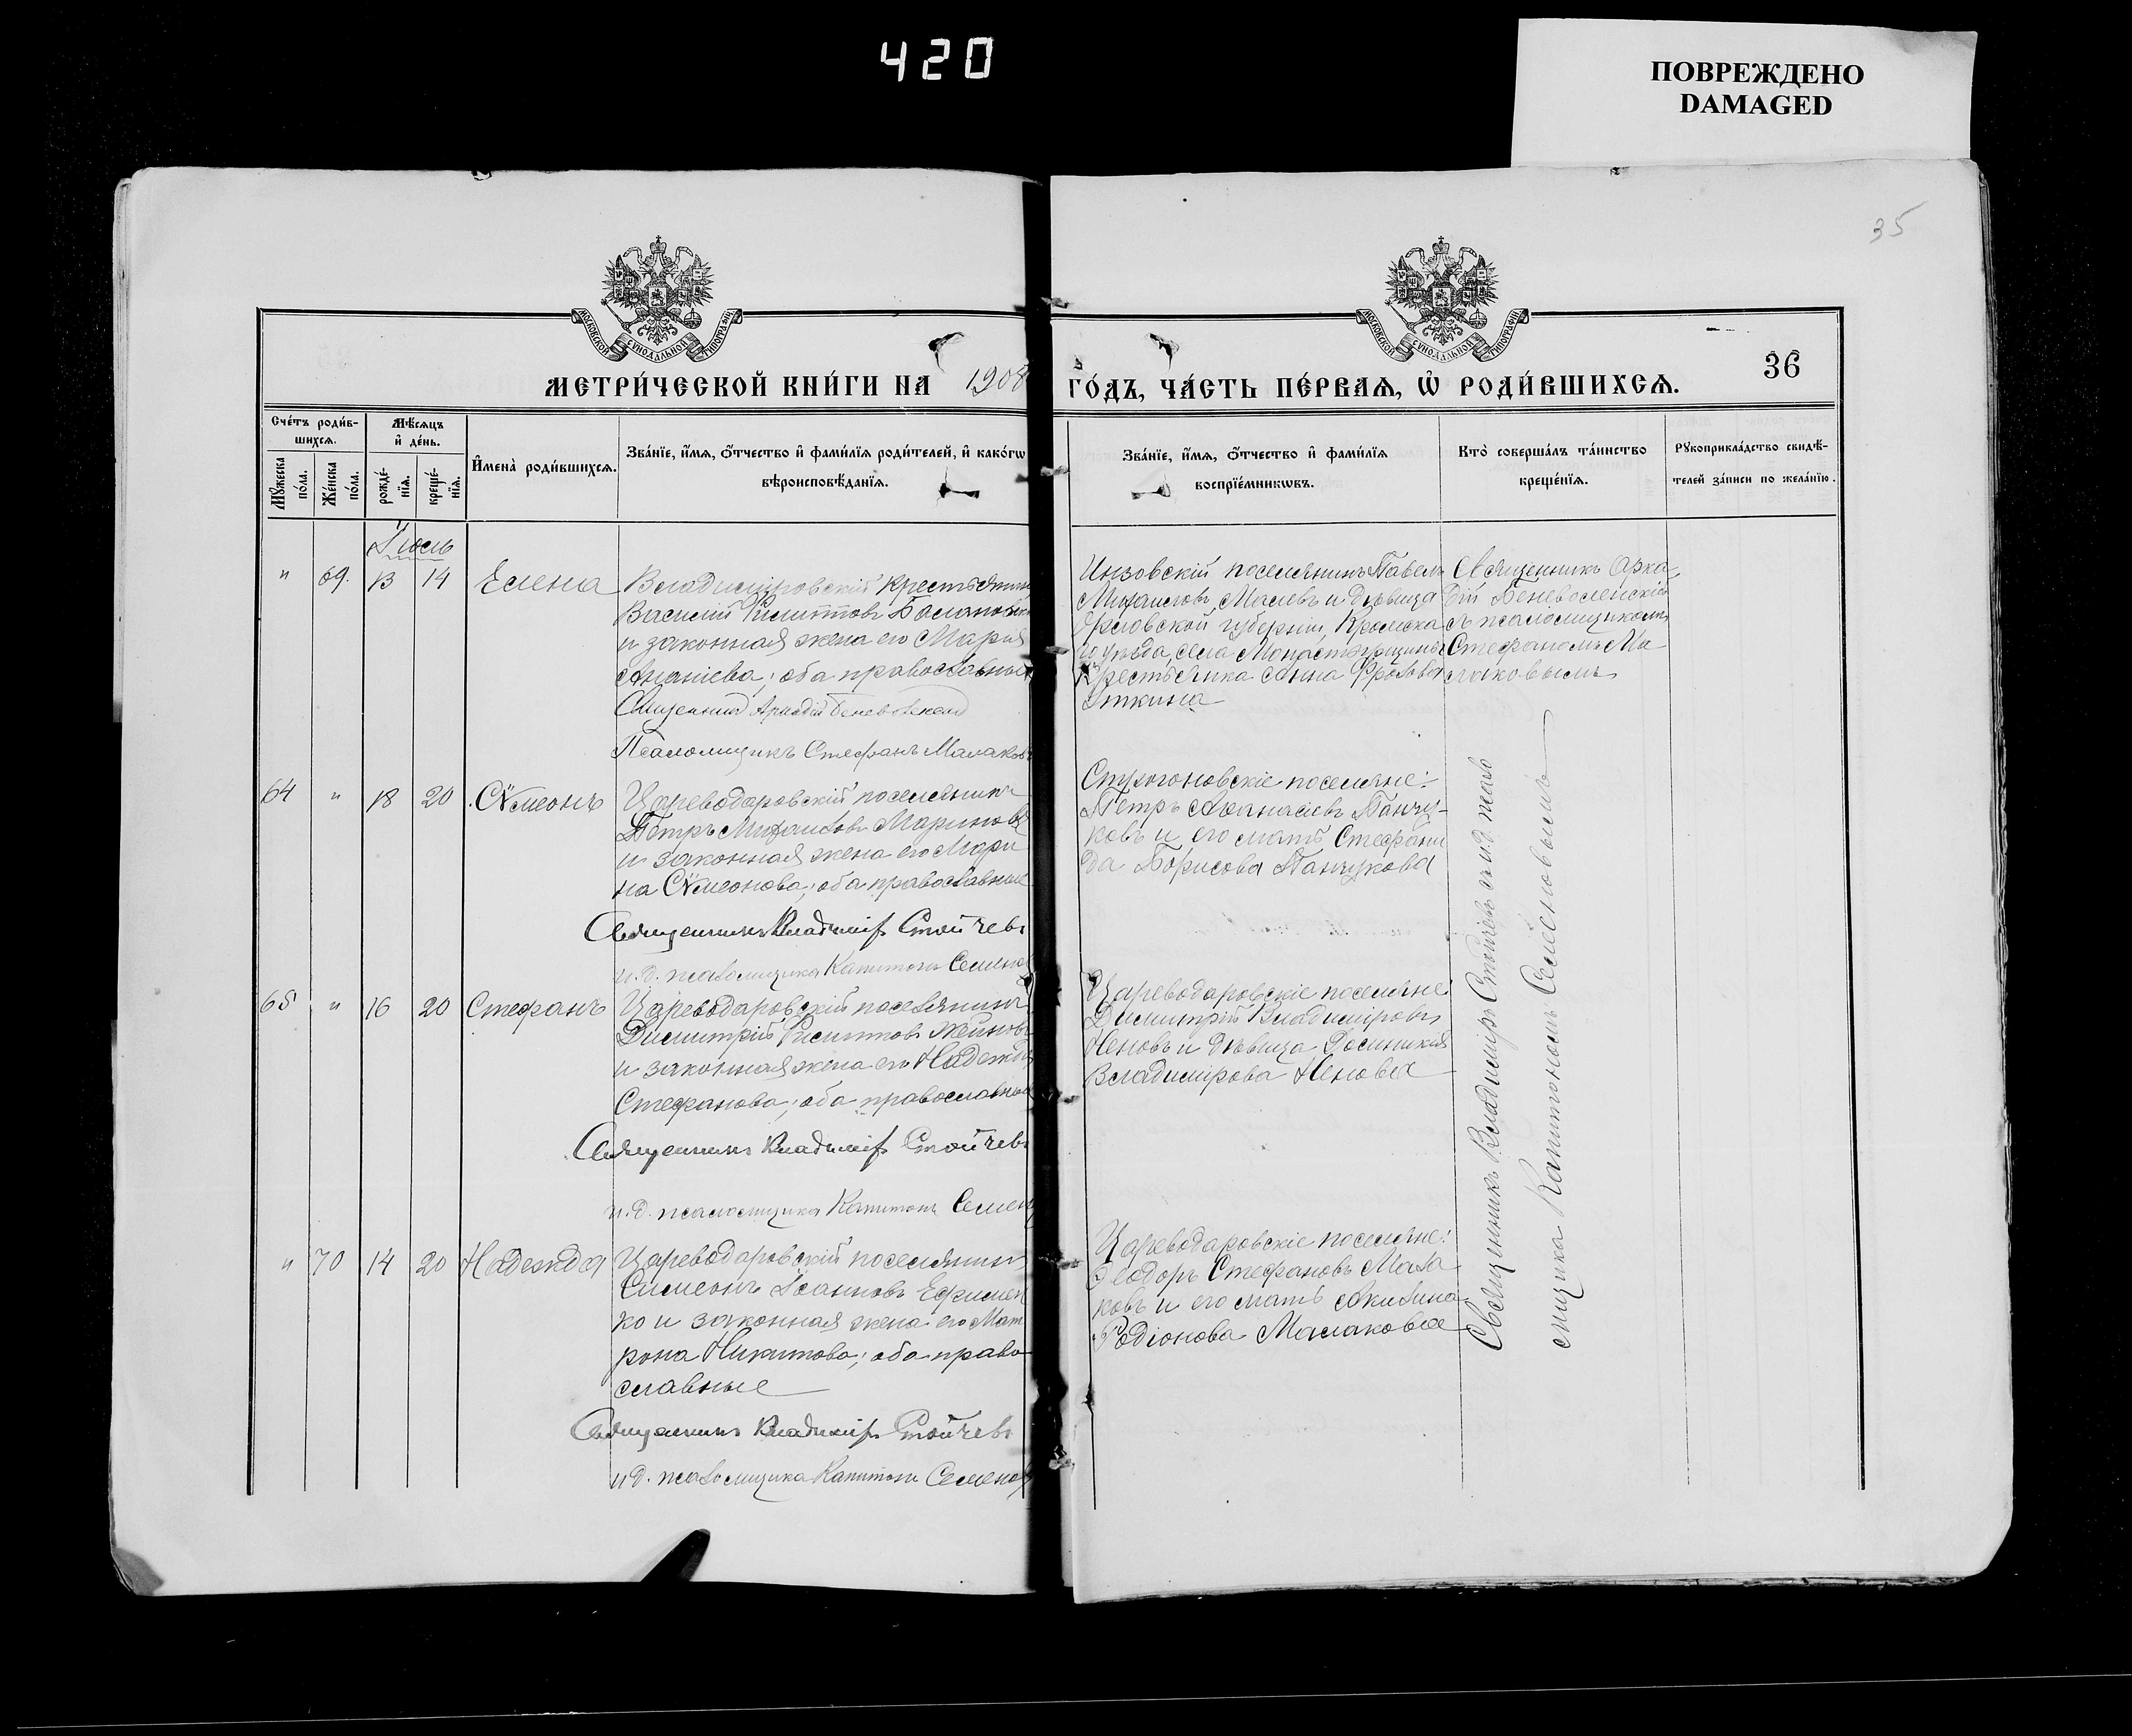 420
ПОВРЕЖДЕНО
DAMAGED
35
МОСКОВСКОЙ СѴНОДАЛЬНОЙ ТИПОГРАФІИ
МОСКОВСКОЙ СѴНОДАЛЬНОЙ ТИПОГРАФІИ
МЕТРИ́ЧЕСКОЙ КНИ́ГИ НА 1908
ГО́ДЪ, ЧА́СТЬ ПЕ́РВАѦ, Ѡ҆ РОДИ́ВШИХСѦ.
36
Сче́тъ роди́в-
шихсѧ.
Мꙋ́жеска по́ла.
Же́нска по́ла.
Мѣ́сѧцъ
и҆ де́нь.
рожде́-
нїѧ.
креще́-
нїѧ.
И҆мена̀ роди́вшихсѧ.
Зва́нїе, и҆́мѧ, ѻ҆́тчество и҆ фами́лїѧ роди́телей, и҆ како́гѡ
вѣроисповѣ́данїѧ.
Зва́нїе, и҆́мѧ, ѻ҆́тчество и҆ фами́лїѧ
воспрїе́мникѡвъ.
Кто̀ соверша́лъ та́инство
креще́нїѧ.
Рꙋкоприкла́дство свидѣ́-
телей за́писи по жела́нїю.
Іюль
" 69. 13 14 Елена
Владиміровскій крестьянинъ
Василій Филипповъ
и законная жена его Марія
Ананіева; оба православные
Священникъ Аркадій Беневоленскій
Псаломщикъ Стефанъ Малаковъ
Инзовскій поселянинъ Павелъ
Михаиловъ Малевъ и дѣвица
Орловской губерніи, Кромска
го уѣзда, села
Крестьянка Анна Фролова
Уткина
Священникъ Арка
дій Беневоленскій
съ псаломщикомъ
Стефаномъ Ма
лаковымъ
64 " 18 20 Сѵмеонъ
Цареводаровскій поселянинъ
Петръ Михаиловъ Мариновъ
и законная жена его Мари
на Сѵмеонова; оба православные
Священникъ Владиміръ Стойчевъ
и.д. псаломщика Капитонъ Семенов
Строгоновскіе поселяне:
Петръ Аѳанасіевъ Панчу-
ковъ и его мать Стефани
да Борисова Панчукова
65 " 16 20 Стефанъ
Цареводаровскій поселянинъ
Димитрій Филипповъ
и законная жена его Надежда
Стефанова; оба православные
Священникъ Владиміръ Стойчевъ
и.д. псаломщика Капитонъ Семен
Цареводаровскіе поселяне:
Димитрій Владиміровъ
Неновъ и дѣвица Домникія
Владимірова Ненова
" 70 14 20 Надежда
Цареводаровскій поселянинъ
Симеонъ Іоанновъ Ефимен
ко и законная жена его Мат
рона Никитова; оба право
славные
Священникъ Владиміръ Стойчевъ
и.д. псаломщика Капитонъ Семенов
Цареводаровскіе поселяне:
Ѳеодоръ Стефановъ Мала
ковъ и его мать Акилина
Родіонова Малакова
Священникъ Владиміръ Стойчевъ съ и.д. псало
мщика Капитономъ Семеновымъ